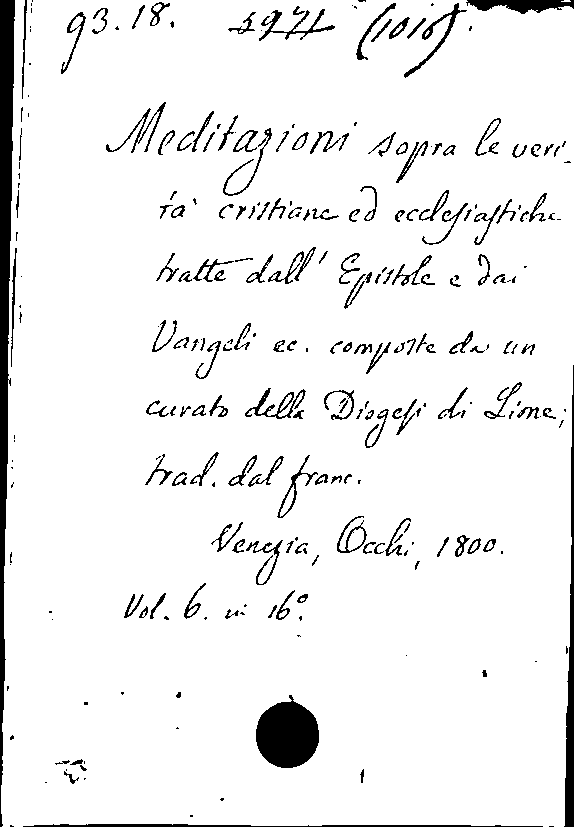 93.18. 5971 (1016).
Meditazioni sopra le veri-
ta' cristiane ed ecclesiastiche
tratte dall' Epistole e dai
Vangeli ec. composte da un
curato della Diogesi di Lione;
trad. dal franc.
Venezia, Occhi, 1800.
Vol. 6. in 16º.